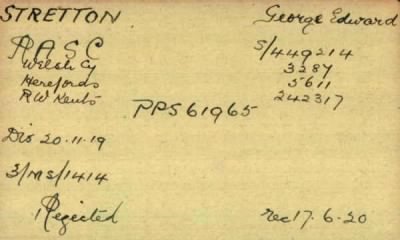 STRETTON George Edward
RASC S/449214
Welsh Cy 3287
Herefords 5611
R W Kents 242317
PPS61965
Dis 20.11.19
3/MS/1414
Rejected rec 17.6-20